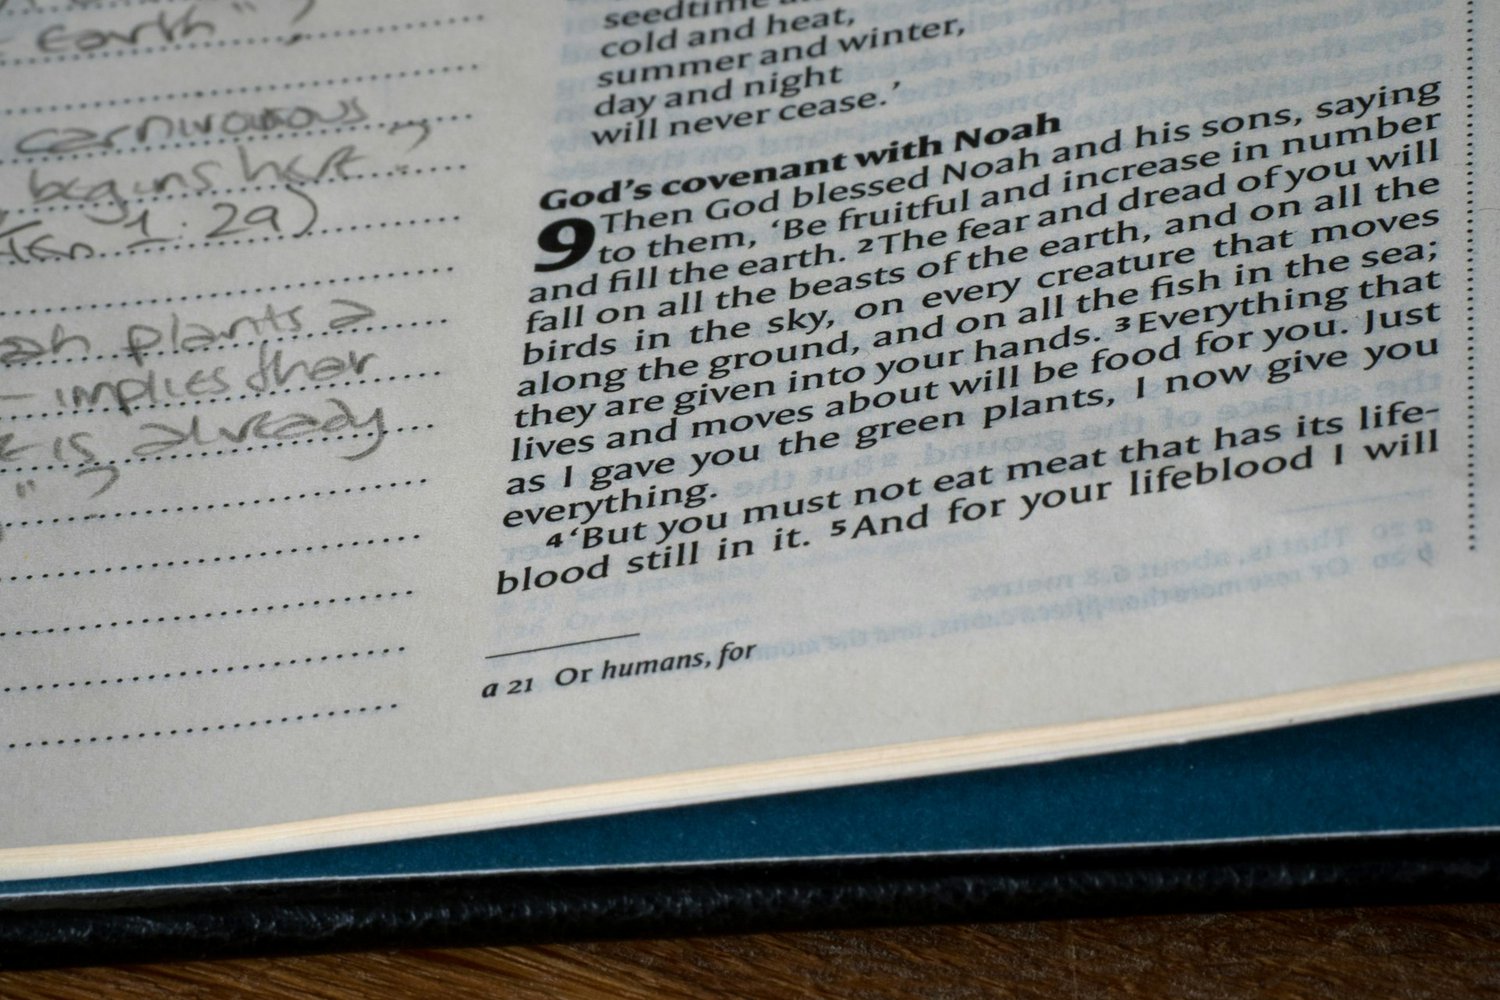 Earth",
carnivorous
begins here,
1:29)
plants a
– implies that
is already
"?
seedtime
cold and heat,
summer and winter,
day and night
will never cease.’
God’s covenant with Noah
9 Then God blessed Noah and his sons, saying
to them, ‘Be fruitful and increase in number
and fill the earth. 2 The fear and dread of you will
fall on all the beasts of the earth, and on all the
birds in the sky, on every creature that moves
along the ground, and on all the fish in the sea;
they are given into your hands. 3 Everything that
lives and moves about will be food for you. Just
as I gave you the green plants, I now give you
everything.
4 ‘But you must not eat meat that has its life-
blood still in it. 5 And for your lifeblood I will
a 21 Or humans, for